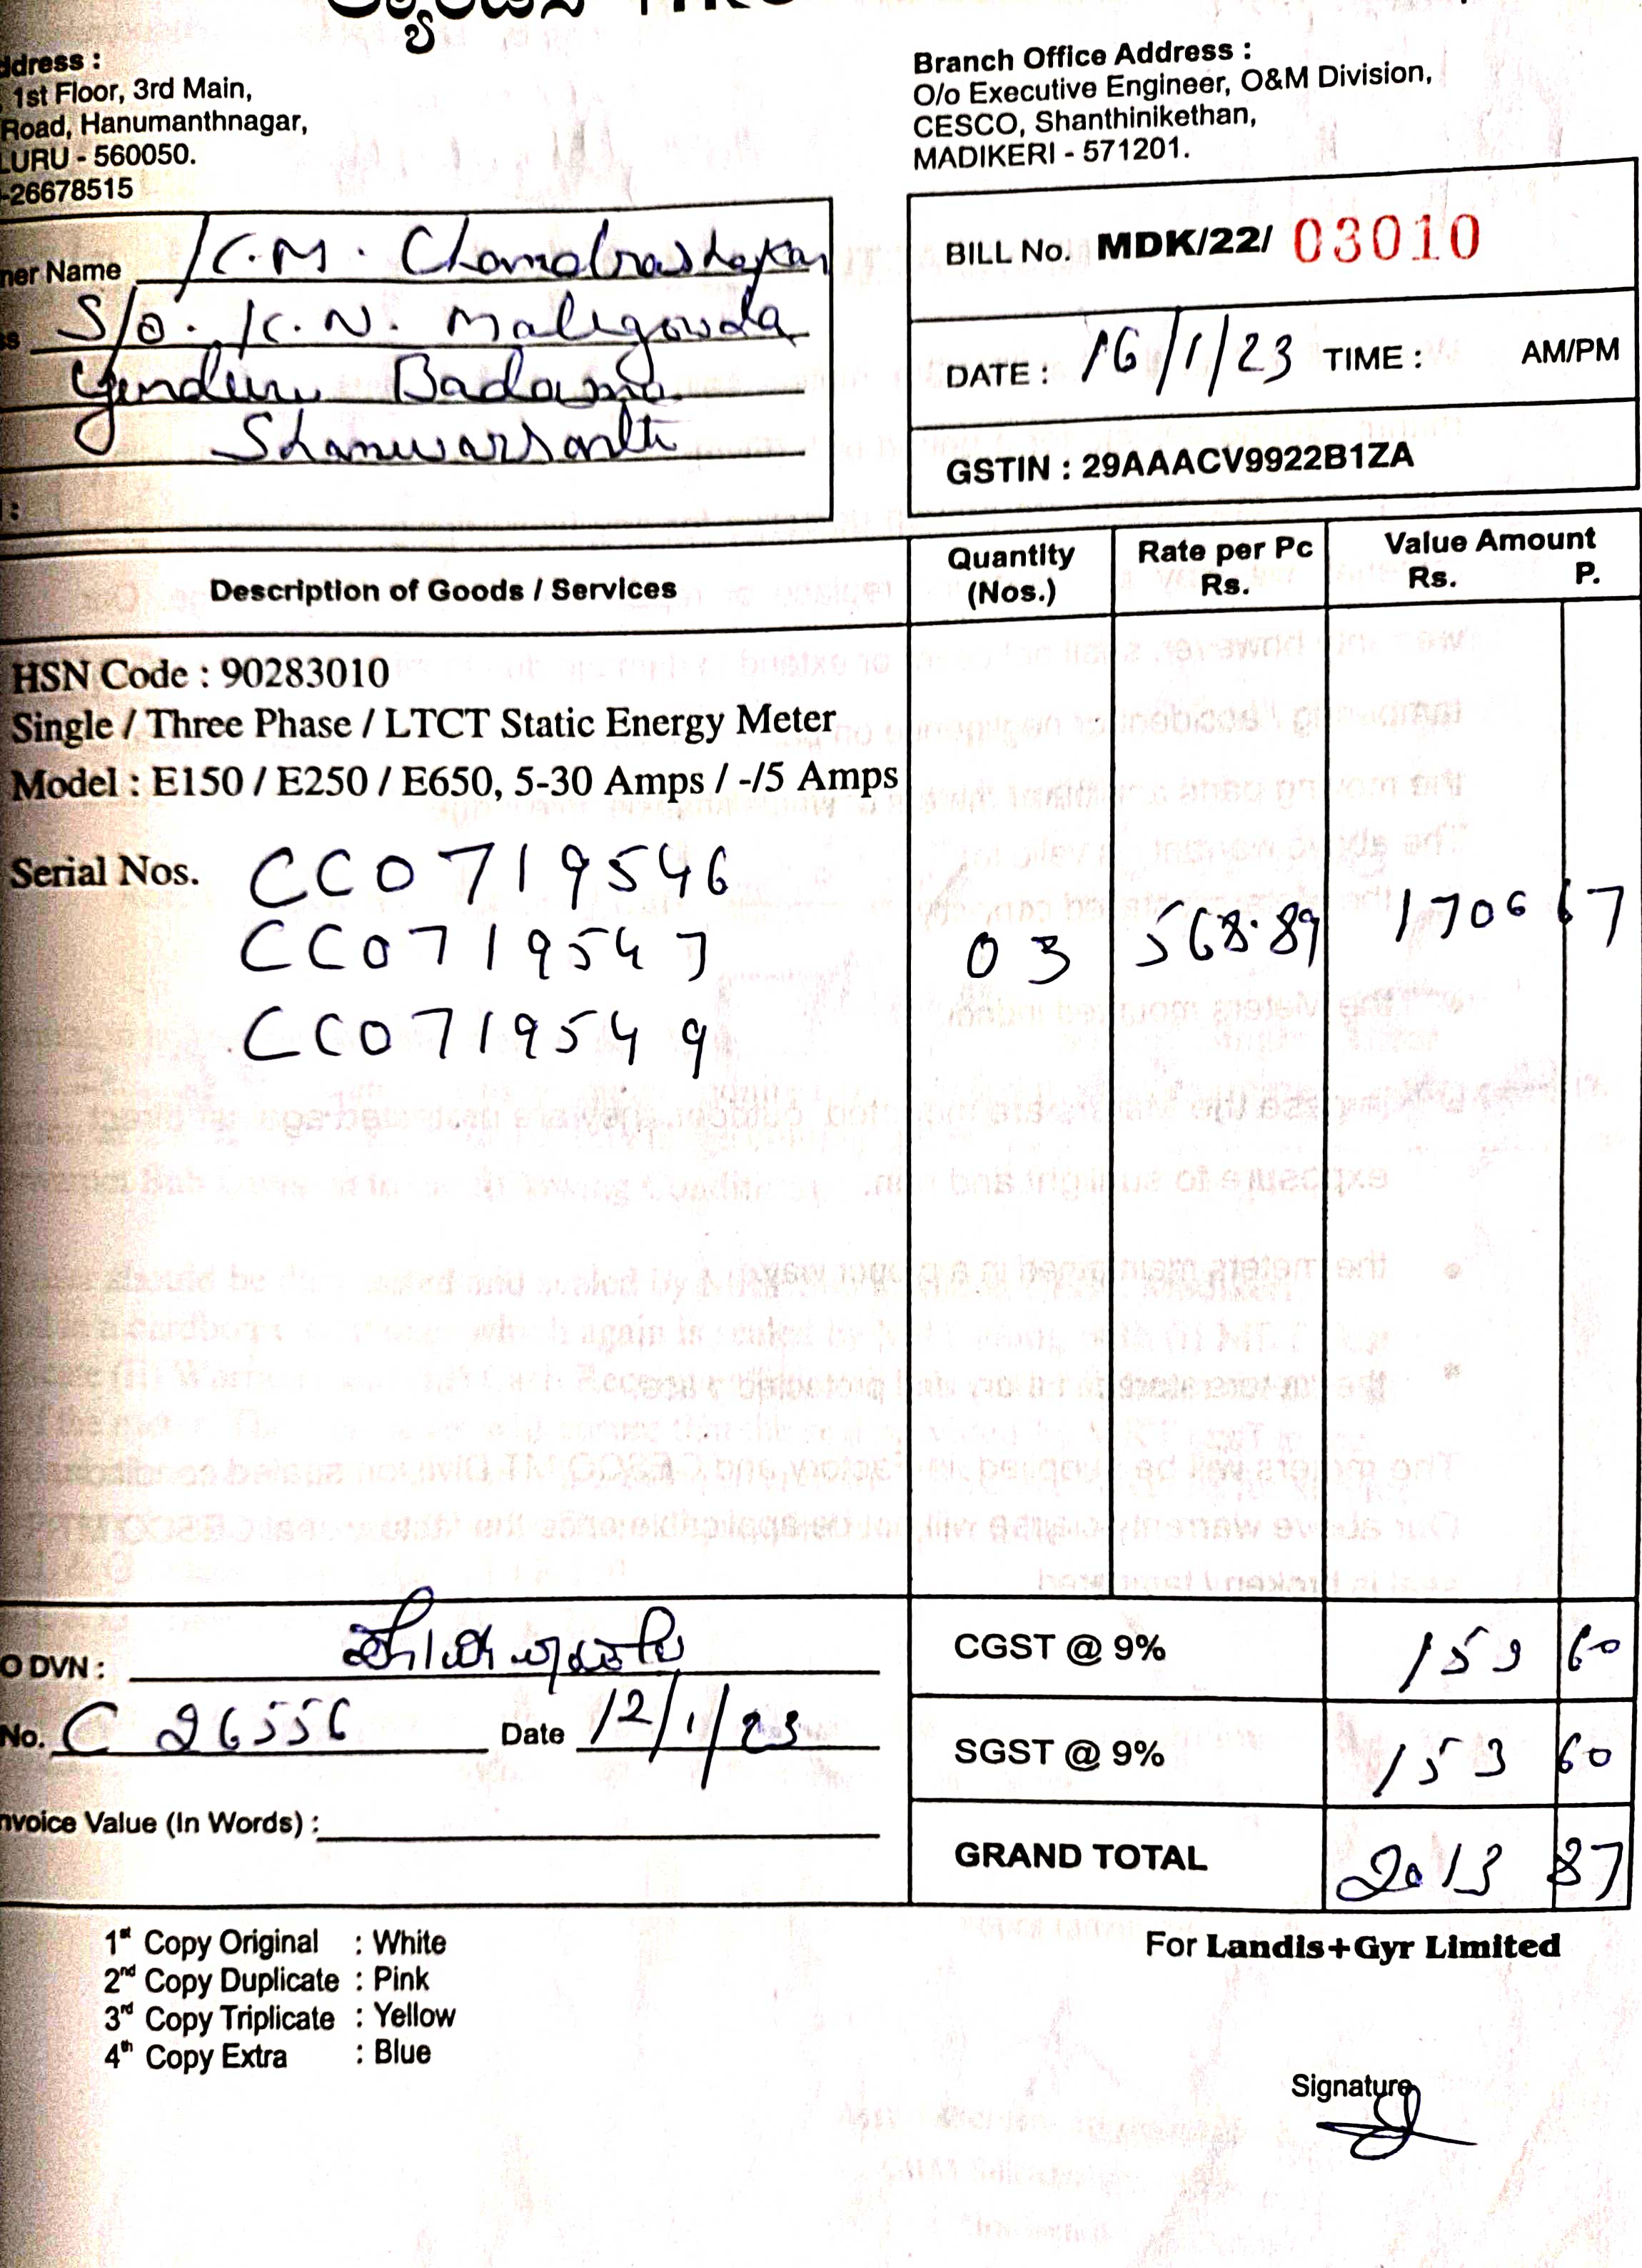 ddress :
1st Floor, 3rd Main,
Road, Hanumanthnagar,
LURU - 560050.
-26678515
Branch Office Address :
O/o Executive Engineer, O&M Division,
CESCO, Shanthinikethan,
MADIKERI - 571201.
ner Name K.M. Chandrashekar
s S/o. K.N. Malegowda
Badavane
Shanuwarsanthe
:
BILL No. MDK/22/ 03010
DATE : 16/1/23 TIME : AM/PM
GSTIN : 29AAACV9922B1ZA
Description of Goods / Services Quantity (Nos.) Rate per Pc Rs. Value Amount Rs. P.
HSN Code : 90283010
Single / Three Phase / LTCT Static Energy Meter
Model : E150 / E250 / E650, 5-30 Amps / -/5 Amps
Serial Nos. CC0719546
CC0719547 03 568.89 1706 67
CC0719549
O DVN :
No. C 26556 Date 12/1/23
nvoice Value (In Words) :
CGST @ 9% 153 60
SGST @ 9% 153 60
GRAND TOTAL 2013 87
1st Copy Original : White
2nd Copy Duplicate : Pink
3rd Copy Triplicate : Yellow
4th Copy Extra : Blue
For Landis+Gyr Limited
Signature